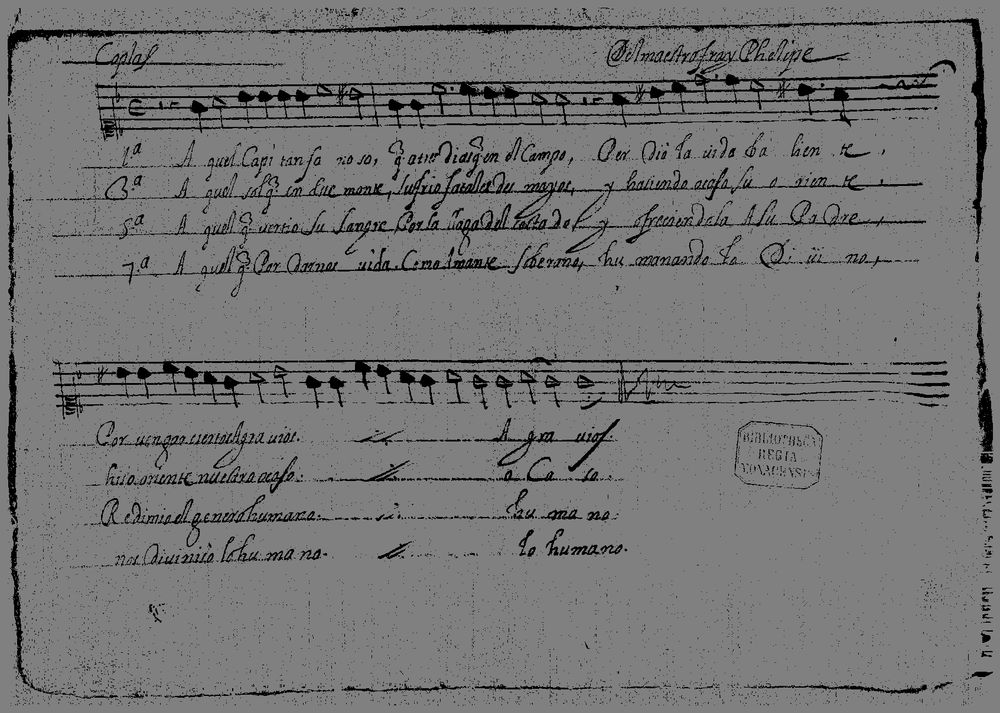 Coplas
Del maestro fray Phelipe
1.ª A quel Capi tan fa mo so, q̃ a tier dia q̃ en el Campo, Per diò la vida va lien te,
3.ª A quel sol q̃ en su monte, sufrio fatales des mayos, y haciendo ocaso su o rien te,
5.ª A quel q̃ vertio su sangre, Por la llaga del costado, y ofreciendola A su Pa dre,
7.ª A quel q̃ Por darnos vida, Como Amante soberano, hu manando lo Di vi no,
Por vengar ciertos Agra vios. A gra vios.
hizo oriente nuestro ocaso. o Ca so.
Redimio el genero humano. hu ma no.
nos Divinizò lo hu ma no. lo humano.
BIBLIOTHECA
REGIA
MONACENSIS